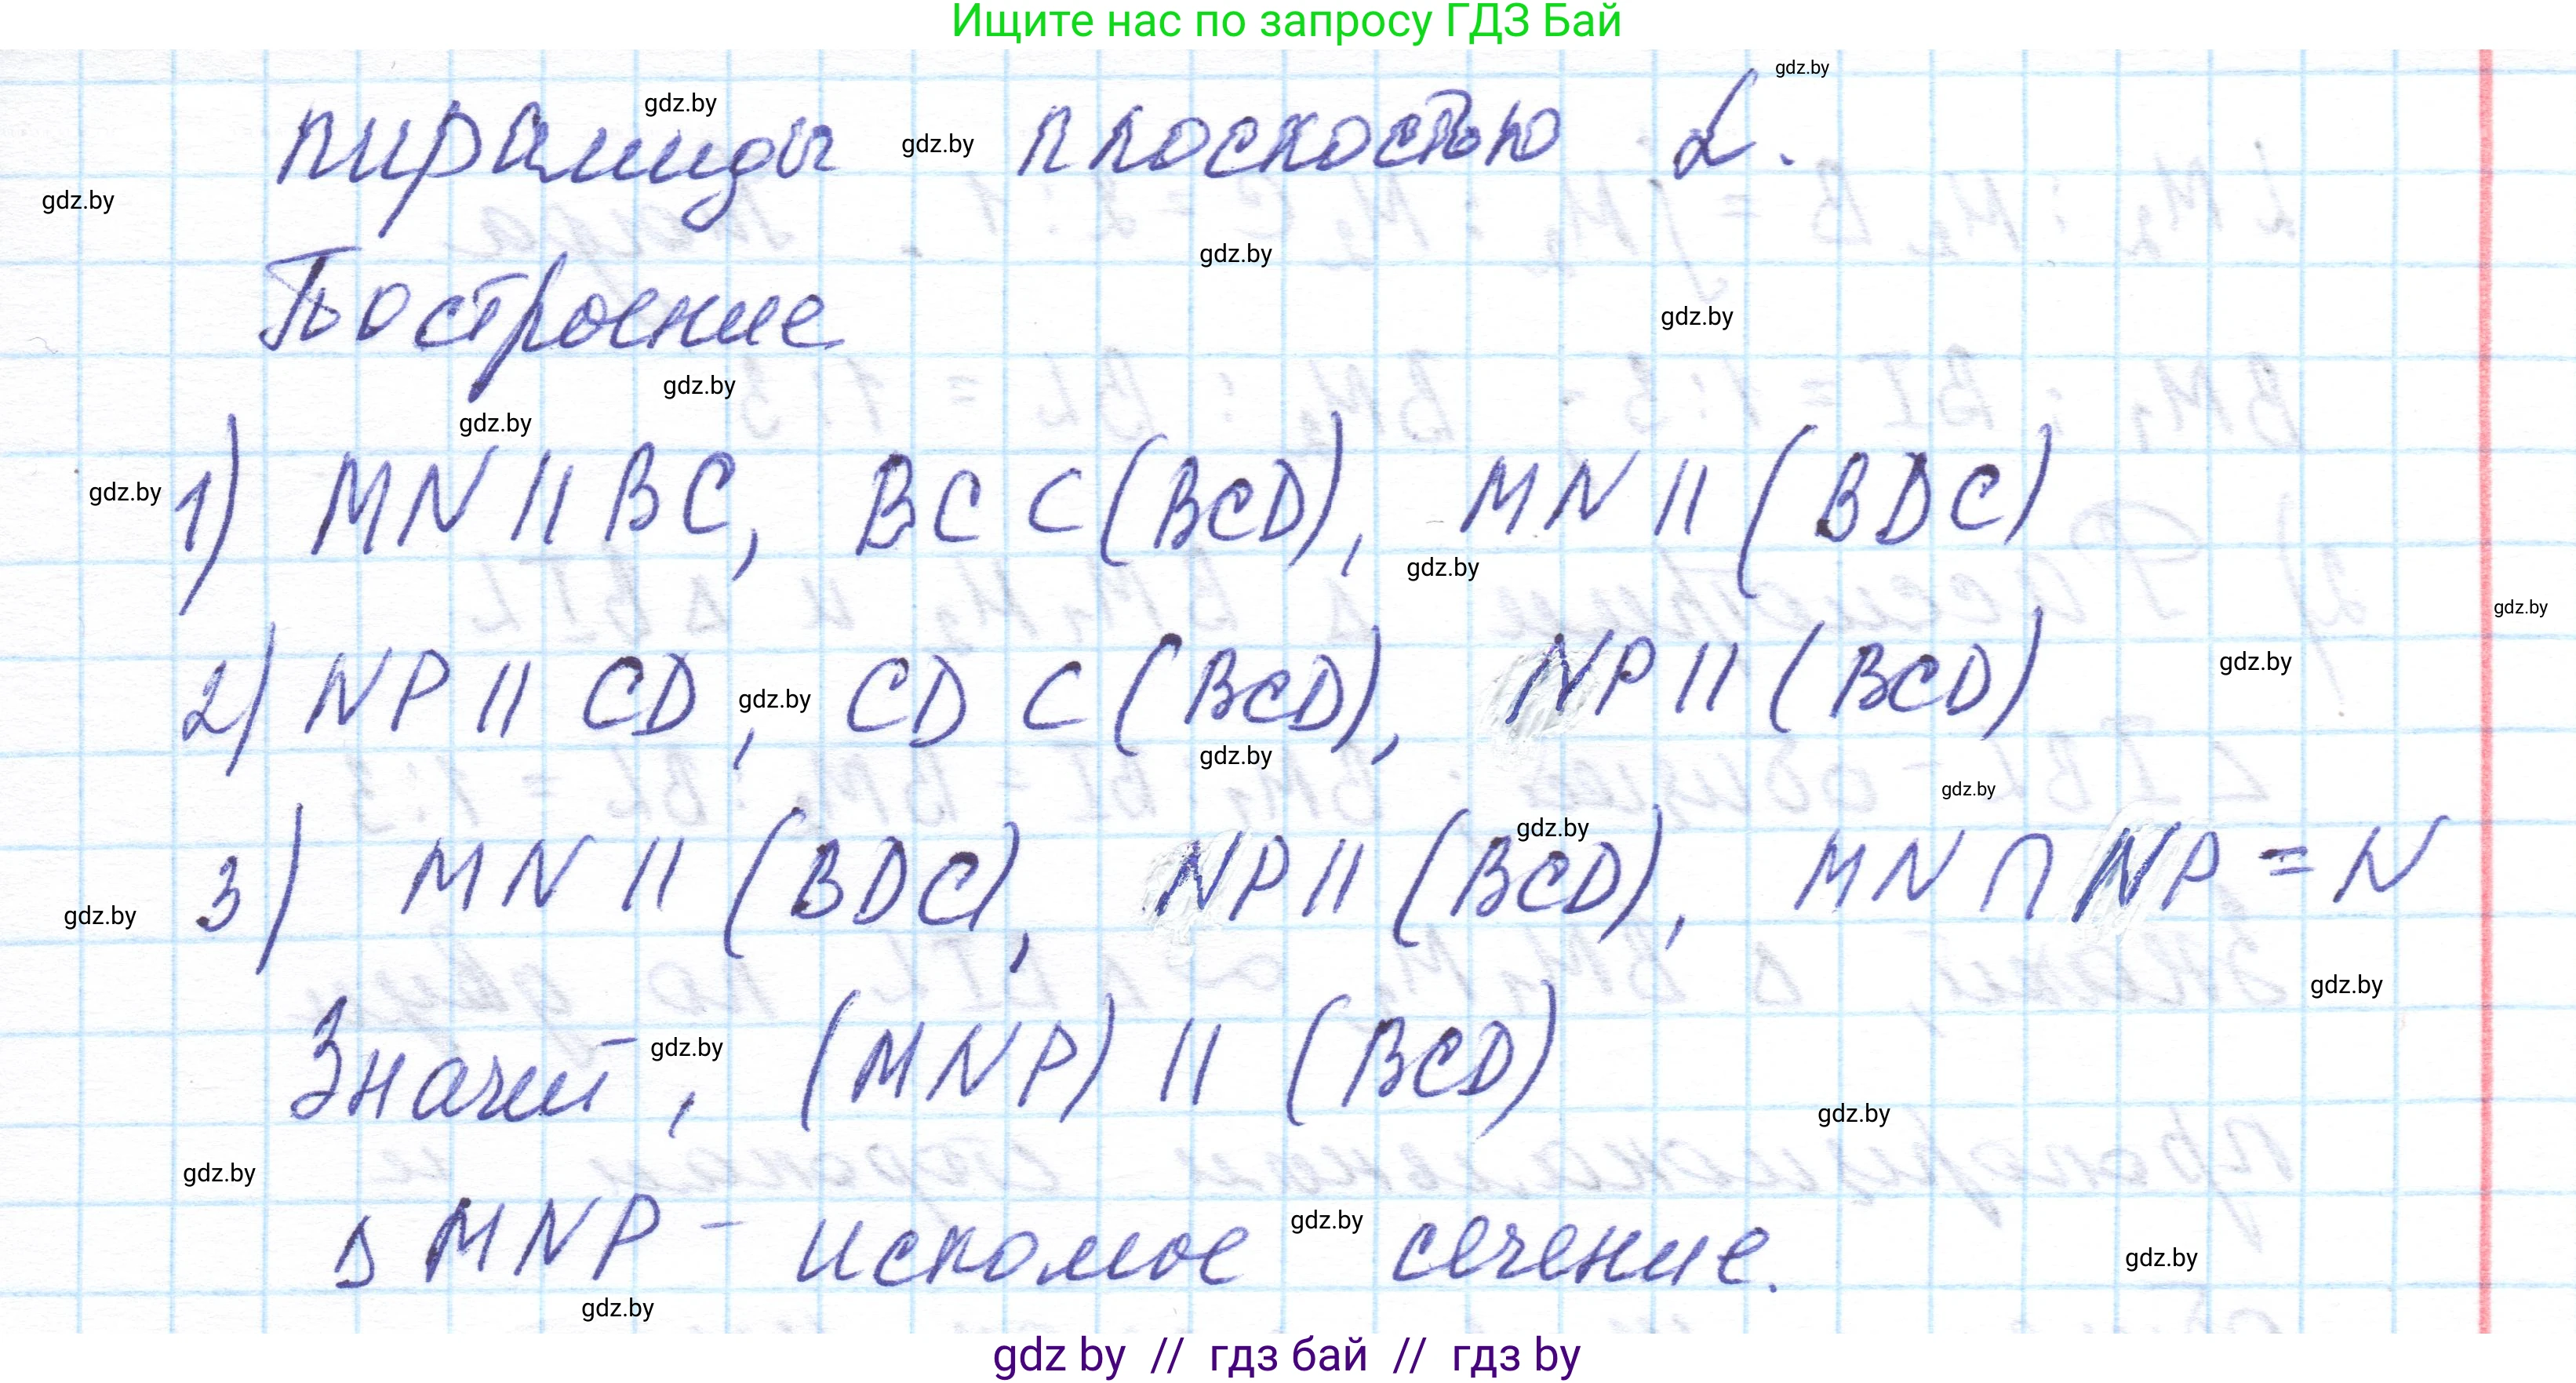 Ищите нас по запросу ГДЗ Бай
gdz.by
gdz.by
пирамиды gdz.by плоскостью α.
gdz.by
gdz.by
Построение
gdz.by
gdz.by
gdz.by
gdz.by 1) MN || BC, BC ⊂ (BCD), MN || (BDC)
gdz.by
gdz.by
2) NP || CD, gdz.by CD ⊂ (BCD), NP || (BCD) gdz.by
gdz.by
gdz.by
gdz.by
gdz.by 3) MN || (BDC), NP || (BCD), MN ∩ NP = N
gdz.by
Значит, gdz.by (MNP) || (BCD)
gdz.by
gdz.by
Δ MNP - искомое gdz.by сечение.
gdz.by
gdz.by
gdz by // гдз бай // гдз by